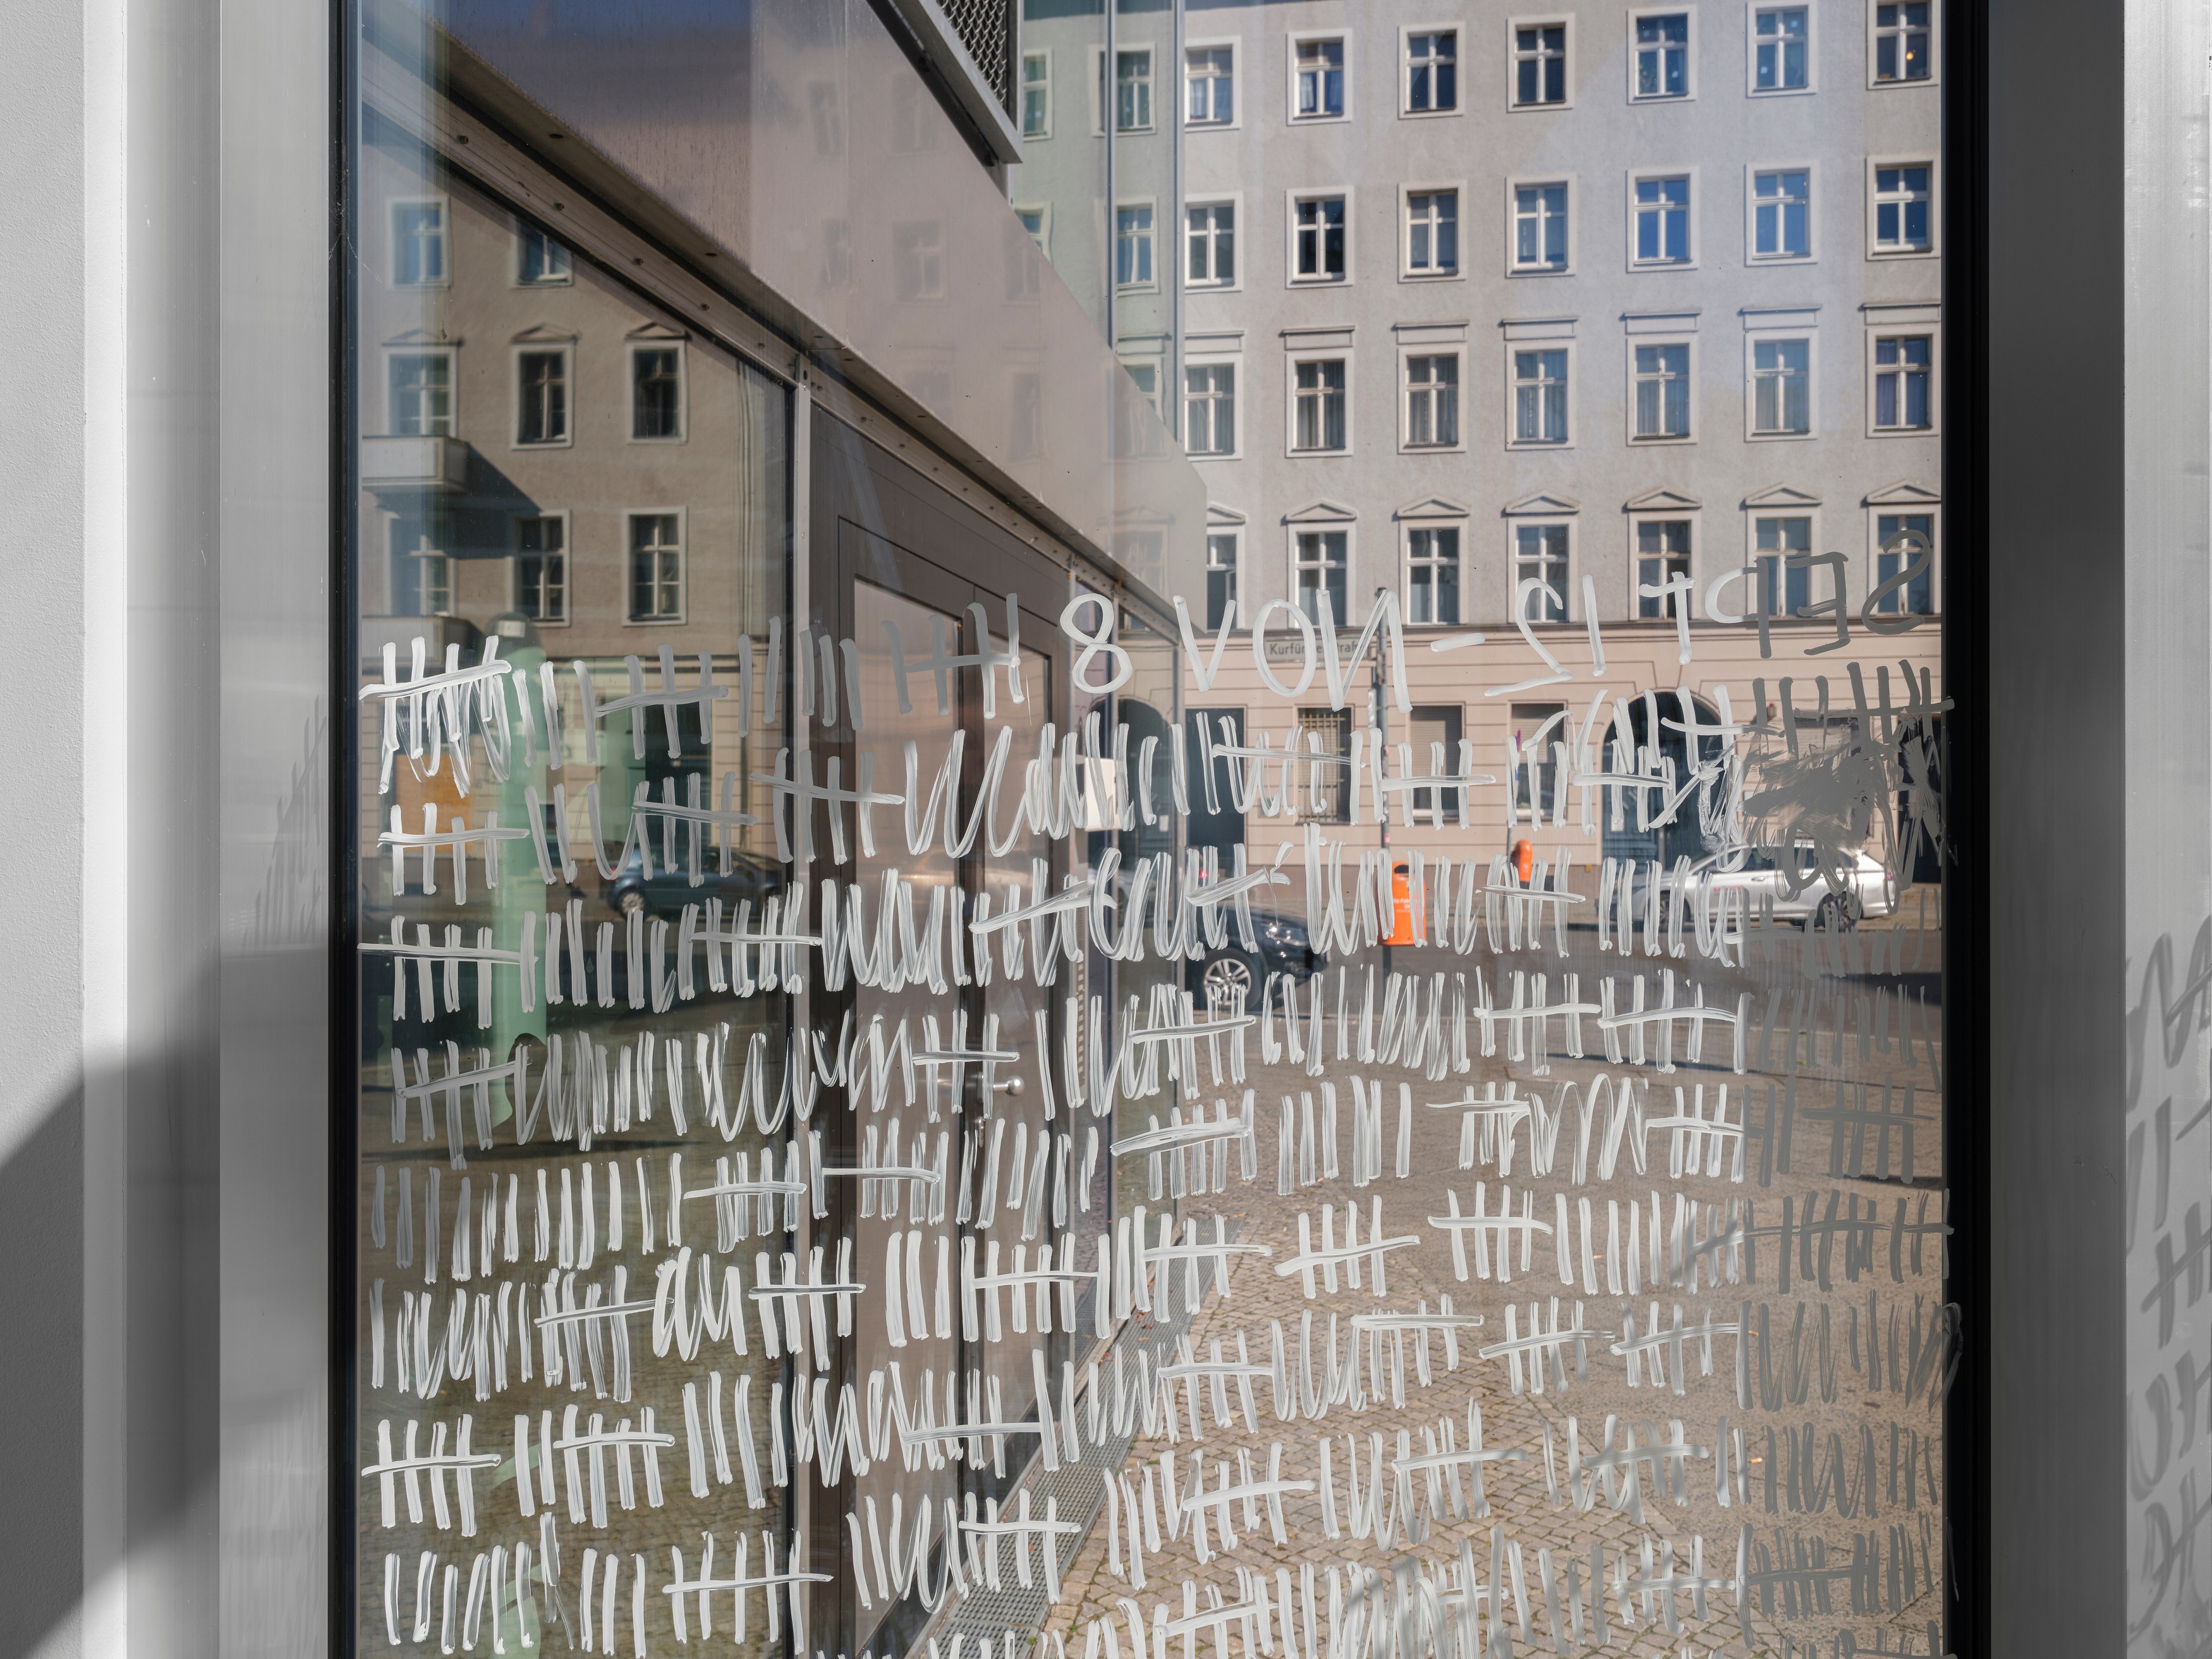 SEPT 12 - NOV 8